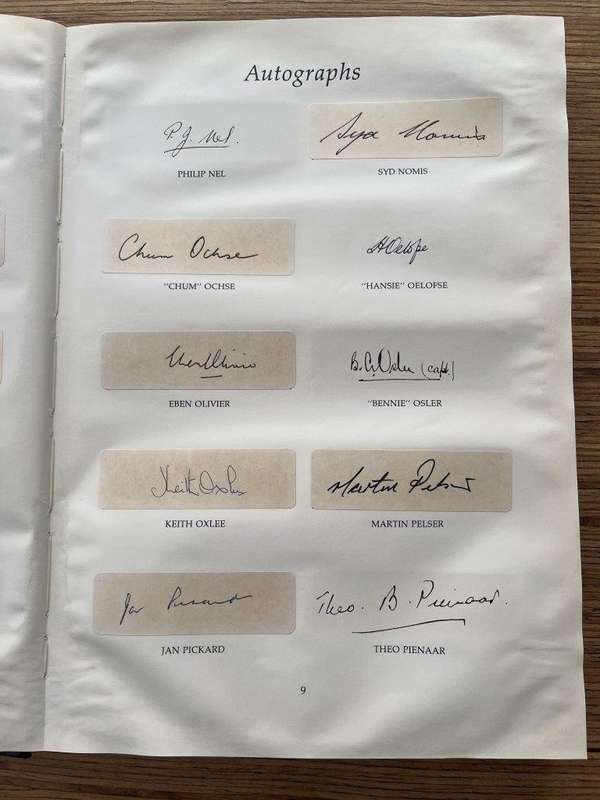 Autographs
P.J. Nel.
Syd Nomis
PHILIP NEL
SYD NOMIS
Chum Ochse
H Oelofse
"CHUM" OCHSE
"HANSIE" OELOFSE
Eben Olivier
B.L. Osler (capt.)
EBEN OLIVIER
"BENNIE" OSLER
Keith Oxlee
Martin Pelser
KEITH OXLEE
MARTIN PELSER
Jan Pickard
Theo. B. Pienaar.
JAN PICKARD
THEO PIENAAR
9